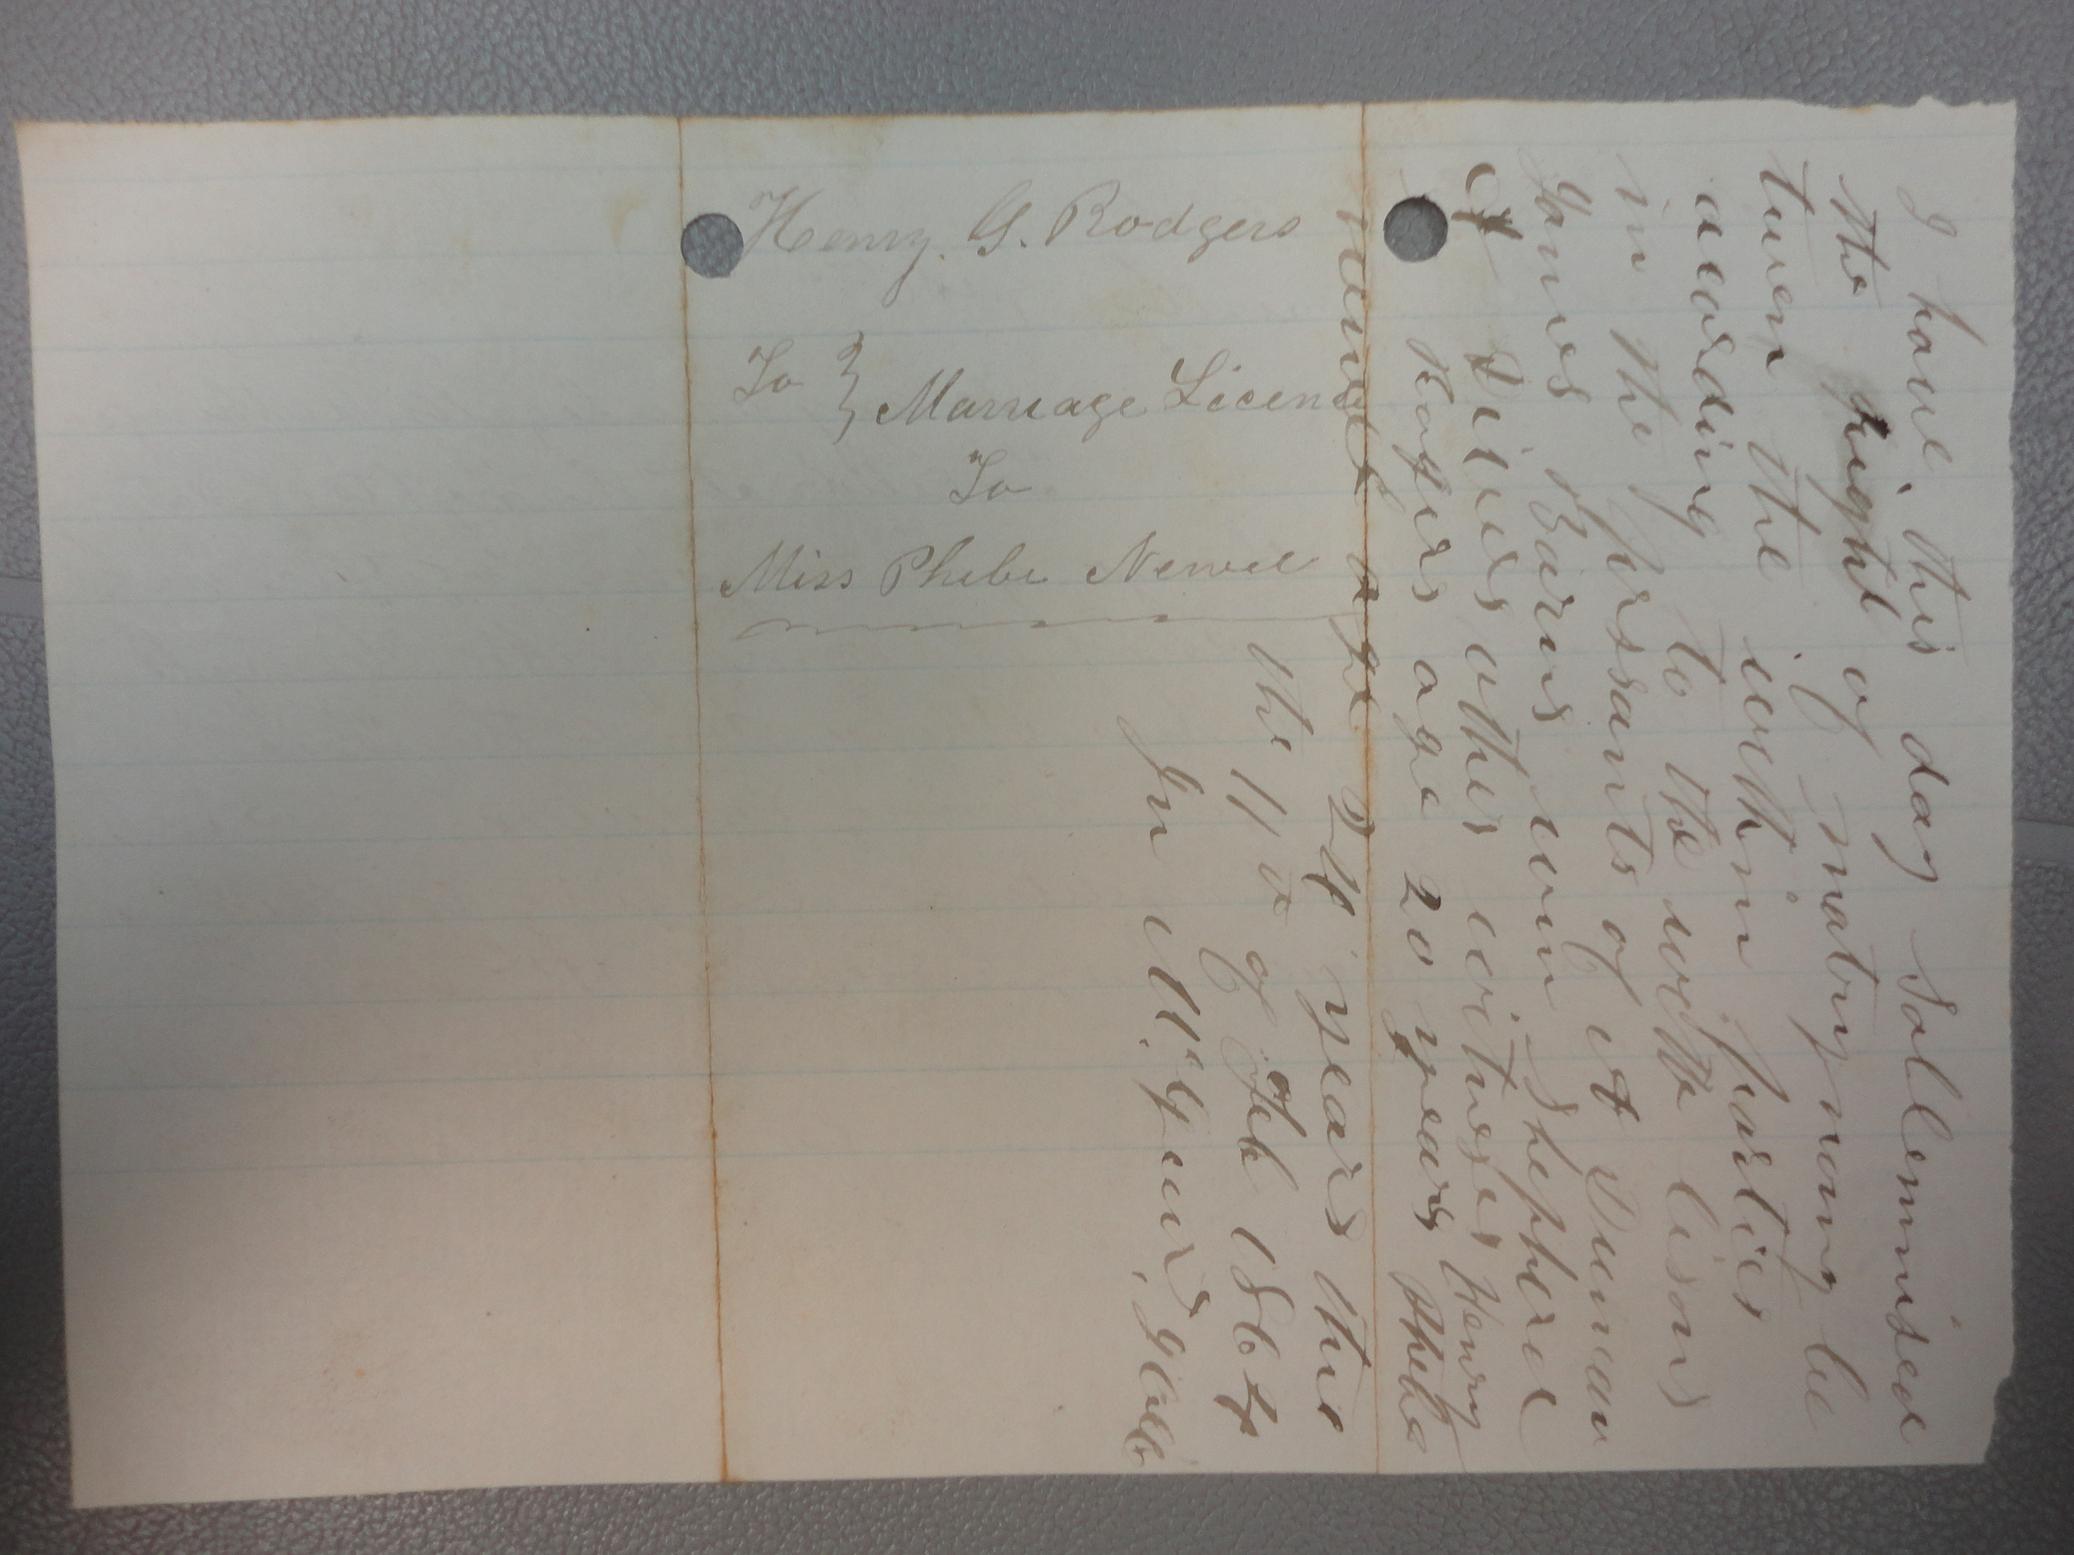 Henry. G. Rodgers
To } Marriage License
To
Miss Phebe Newel
I have this day Sollemnised
the Right of matrymony be
tween the within parties
according to the within lisons
in the prssants of A Duncan
James Barns wm Shepherd
& Divers other witnesses Henry
Rogers age 20 years Phebe
newel age 24 years this
the 11 o of Feb 1864
Jn